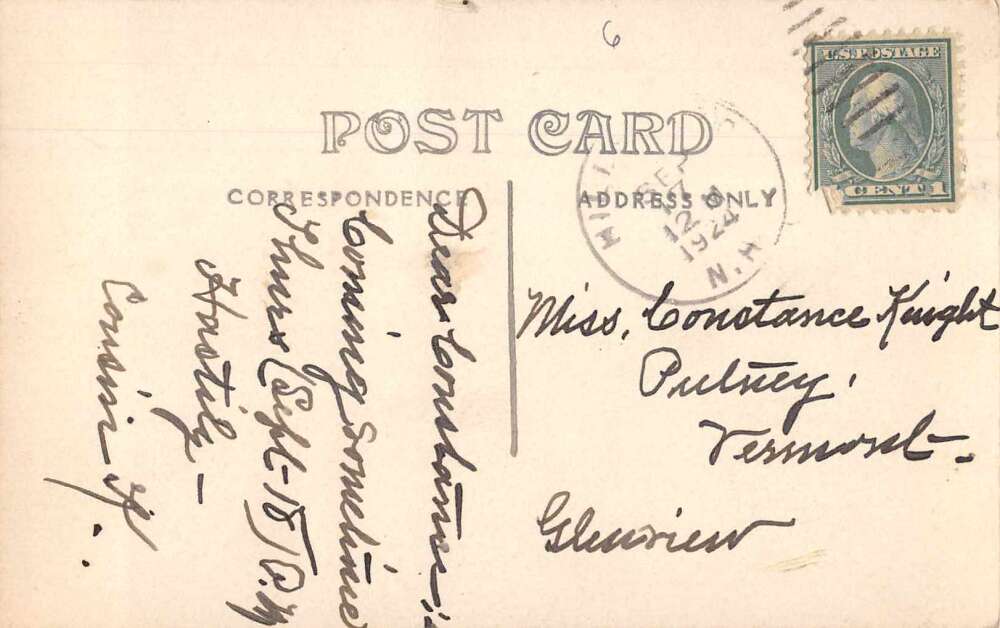 6
U.S. POSTAGE
CENT 1
POST CARD
CORRESPONDENCE
ADDRESS ONLY
SEP
17
12 M
1924
N.H.
Dear Constance:
Coming sometime
Thurs (Sept-18) P.M.
Hastily-
Cousin
Miss, Constance Knight
Putney,
Vermont-
Glenview